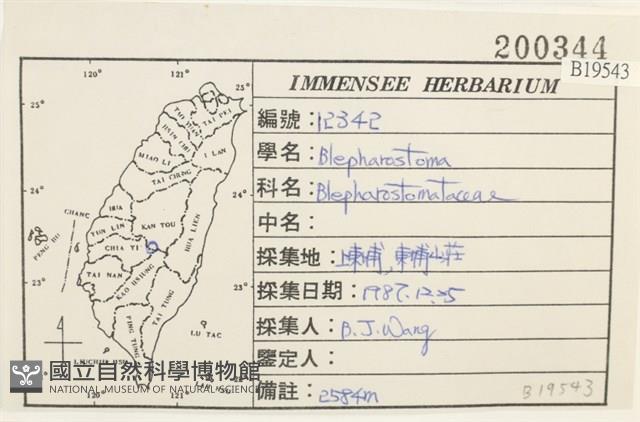 200344
B19543
IMMENSEE HERBARIUM
編號：12342
學名：Blepharostoma
科名：Blepharostomataceae
中名：
採集地：上東埔,東埔山莊
採集日期：1987.12.25
採集人：B.J.Wang
鑒定人：
備註：2584m
B19543
120°
121°
25°
25°
TAI PEI
I LAN
MIAO LI
TAI CHUNG
24°
24°
CHANG
HUA
KAN TOU
HUA LIEN
YUN LIN
PENG HU
CHIA YI
TAI NAN
KAO HSIUNG
23°
23°
TAI TUNG
PING TUNG
LU TAO
120°
121°
國立自然科學博物館
NATIONAL MUSEUM OF NATURAL SCIENCE